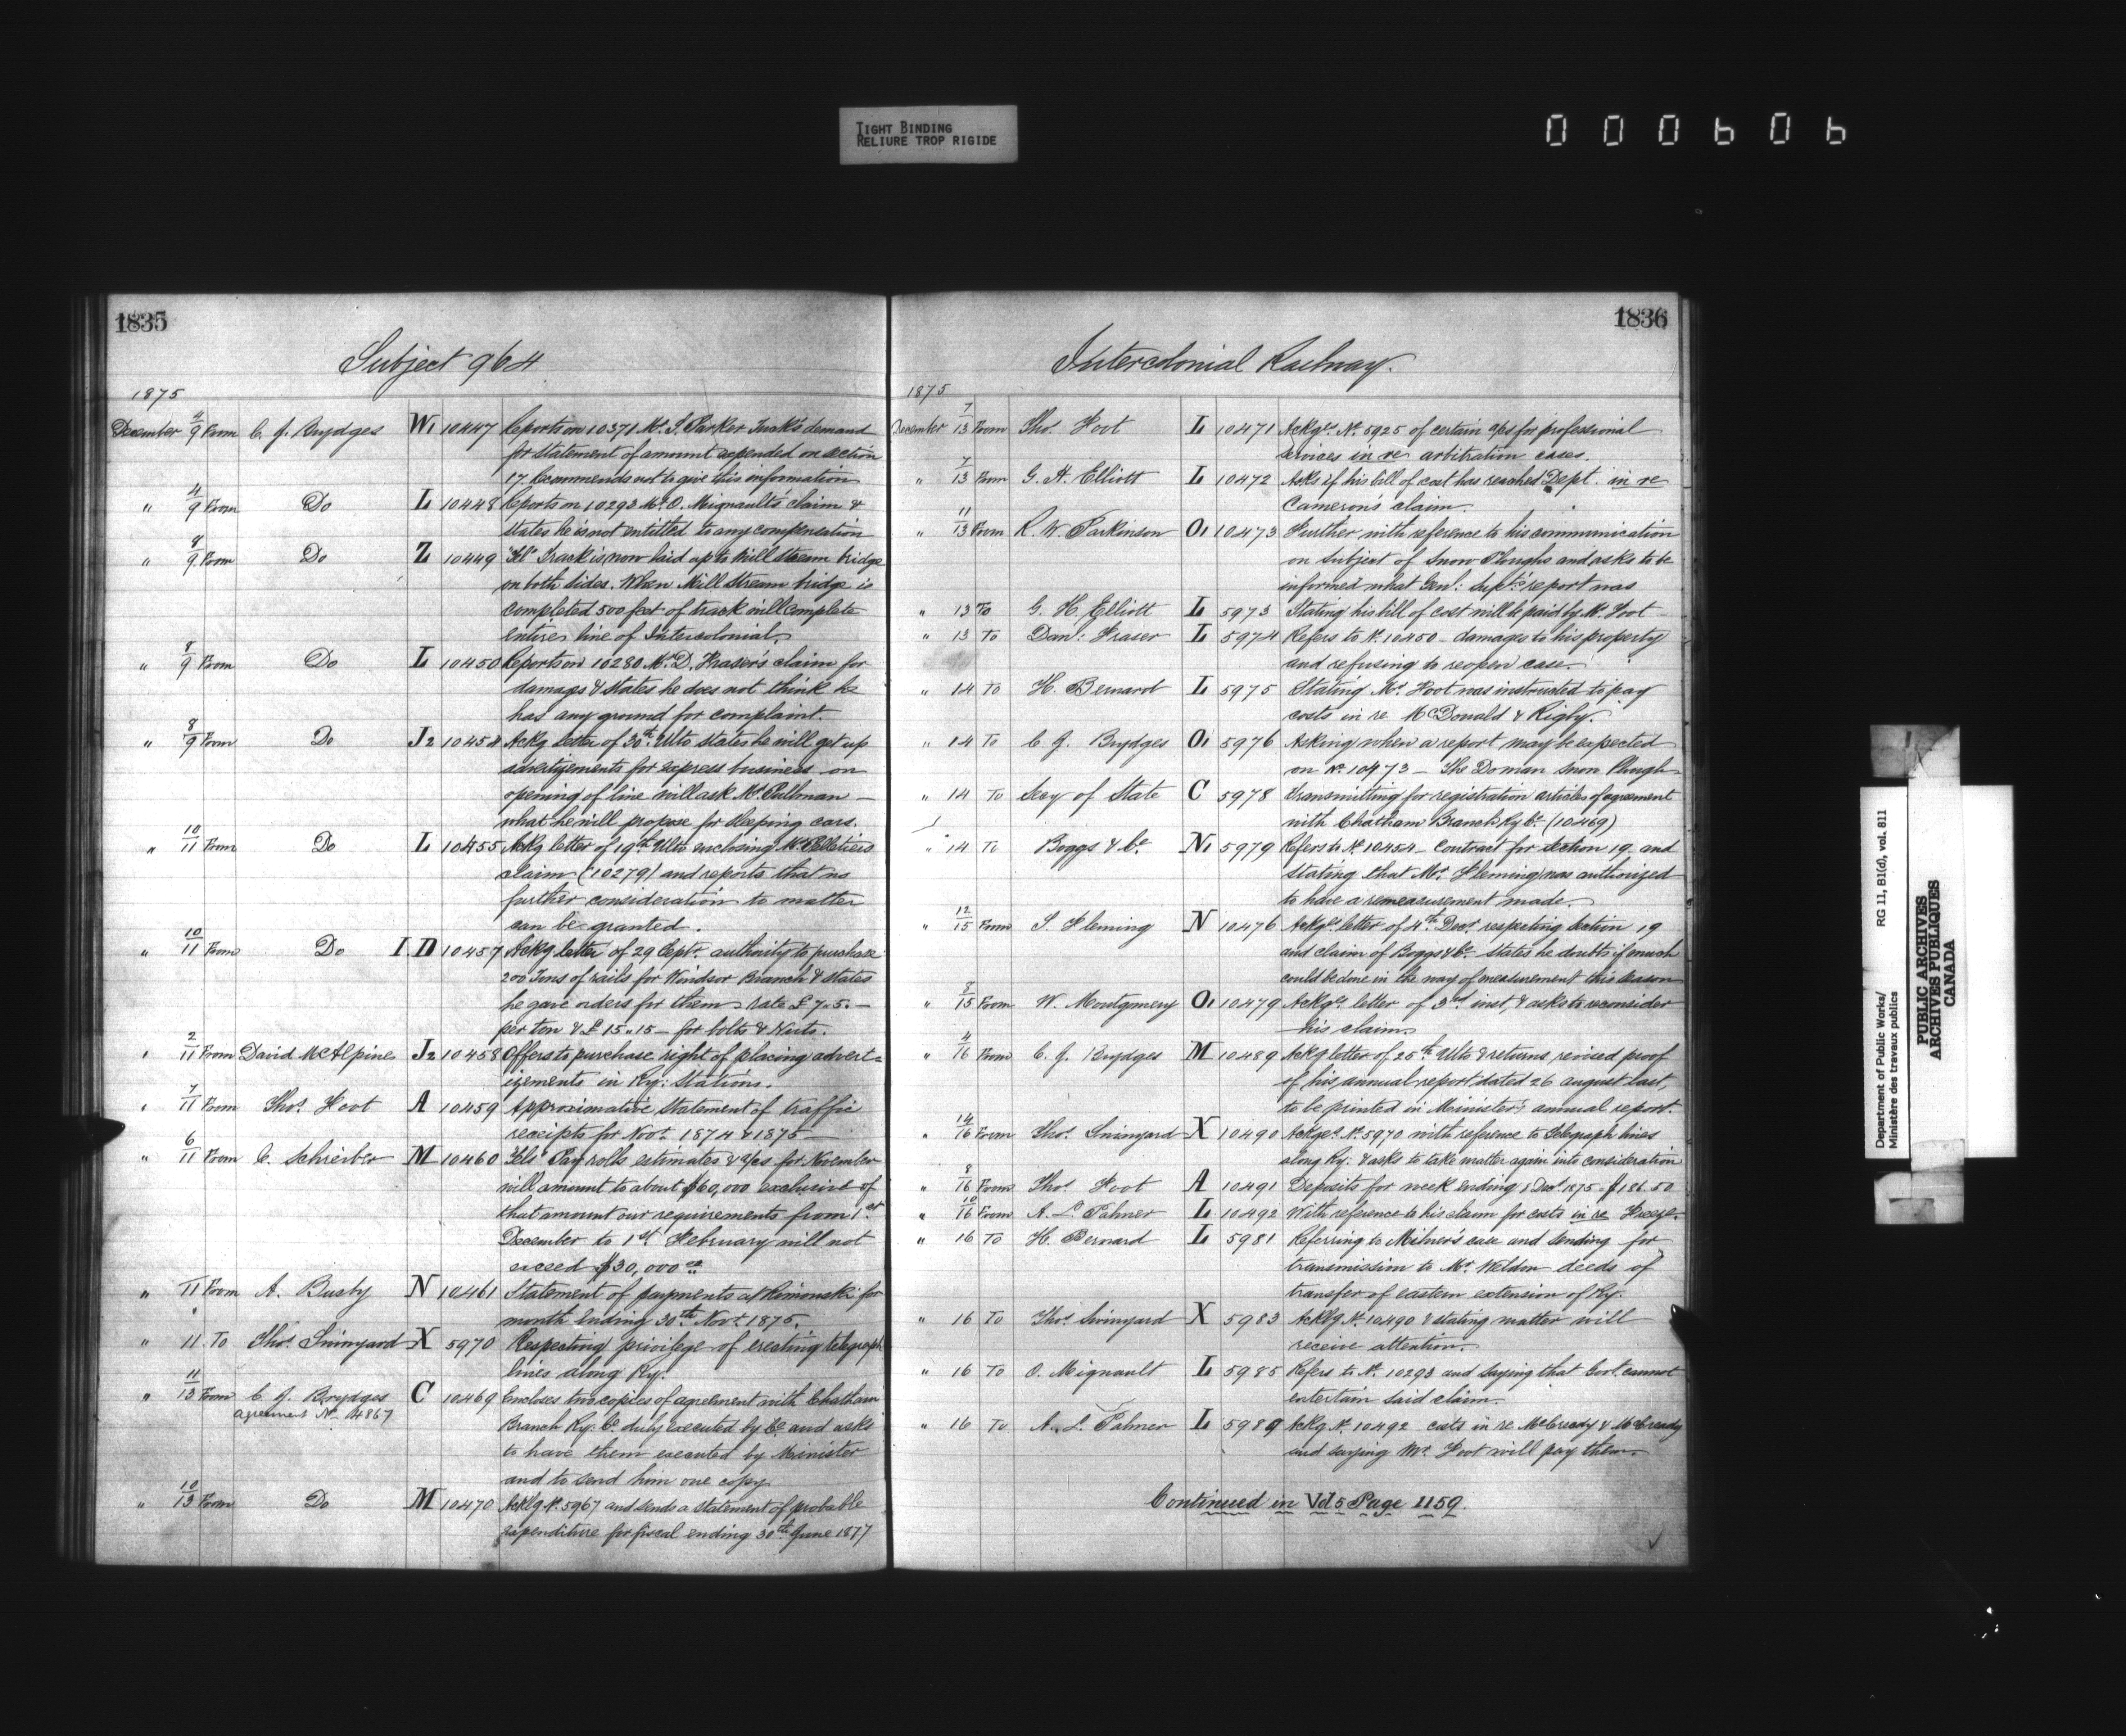 TIGHT BINDING
RELIURE TROP RIGIDE
000606
1835
Subject 964
1875
December 4/9 From C. J. Brydges W1 10447 Reports on 10371 Mr. S. Parker Tuck's demand
for statement of amount expended on section
17. Recommends not to give this information
" 4/9 From Do L 10448 Reports on 10293 Mr. O. Mignault's claim &
states he is not entitled to any compensation
" 8/9 From Do Z 10449 "Tel" Track is now laid up to Mill stream bridge
on both sides. When Mill Stream bridge is
completed 500 feet of track will complete
entire line of Intercolonial.
" 8/9 From Do L 10450 Reports on 10280 Mr. D. Fraser's claim for
damages & states he does not think he
has any ground for complaint.
" 8/9 From Do J2 10454 Ackg letter of 30th Ulto states he will get up
advertizements for express business on
opening of line will ask Mr. Pullman —
what he will propose for sleeping cars.
" 10/11 From Do L 10455 Ackg letter of 19th Ulto enclosing Mr. Pelletiers
claim (10279) and reports that no
further consideration to matter
can be granted.
" 10/11 From Do I.D 10457 Ackg letter of 29 Septr. authority to purchase
200 Tons of rails for Windsor Branch & states
he gave orders for them rate £7.5. —
per ton & £15.,15 — for bolts & Nuts.
" 2/11 From David McAlpine J2 10458 Offers to purchase right of placing advert=
izements in Ry: Stations.
" 7/11 From Thos. Foot A 10459 Approximative Statement of traffic
receipts for Novr. 1874 & 1875 —
" 6/11 From C. Schreiber M 10460 "Tels" Pay rolls estimates & a/cs for November
will amount to about $60,000 exclusive of
that amount our requirements from 1st
December to 1st February will not
exceed $30,000
" 11 From A. Busby N 10461 Statement of payments at Rimouski for
month ending 30th Novr. 1875.
" 11 To Thos. Swinyard X 5970 Respecting privilege of erecting telegraph
lines along Ry.
" 11/13 From C. J. Brydges C 10469 Encloses two copies of agreement with Chatham
agreement No. 4867
Branch Ry. Co. duly executed by Co. and asks
to have them executed by Minister
and to send him one copy.
" 10/13 From Do M 10470 Acklg No. 5967 and sends a statement of probable
expenditure for fiscal ending 30th June 1877
1836
Intercolonial Railway.
1875
December 7/13 From Thos. Foot L 10471 Ackgs. No. 5925 of certain a/cs for professional
services in re arbitration cases.
" 7/13 From G. H. Elliott L 10472 Asks if his bill of cost has reached Dept. in re
Cameron's claim.
" 11/13 From R. W. Parkinson O1 10473 Further with reference to his communication
on subject of Snow Ploughs and asks to be
informed what Genl: Supt's report was
" 13 To G. H. Elliott L 5973 Stating his bill of cost will be paid by Mr. Foot
" 13 To Danl: Fraser L 5974 Refers to No. 10450 — damages to his property
and refusing to reopen case.
" 14 To H. Bernard L 5975 Stating Mr. Foot was instructed to pay
costs in re McDonald & Rigby.
" 14 To C. J. Brydges O1 5976 Asking when a report may be expected
on No. 10473 — The Doman Snow Plough
" 14 To Secy of State C 5978 Transmitting for registration articles of agreement
with Chatham Branch Ry Co. (10469)
" 14 To Boggs & Co. N1 5979 Refers to No. 10454 — Contract for section 19 and
stating that Mr. Fleming was authorized
to have a remeasurement made.
" 12/15 From S. Fleming N 10476 Ackgs letter of 4th Decr. respecting section 19
and claim of Boggs & Co. States he doubts if much
could be done in the way of measurement this season
" 8/15 From W. Montgomery O1 10479 Ackgs letter of 3rd inst, & asks to reconsider
his claim.
" 4/16 From C. J. Brydges M 10489 Ackg letter of 25th Ulto & returns revised proof
of his annual report dated 26 august last,
to be printed in Minister's annual report.
" 14/16 From Thos. Swinyard X 10490 Ackges No. 5970 with reference to telegraph lines
along Ry: & asks to take matter again into consideration
" 8/16 From Thos. Foot A 10491 Deposits for week ending 8 Decr. 1875 $186.50
" 10/16 From A. L. Palmer L 10492 With reference to his claim for costs in re Freeze.
" 16 To H. Bernard L 5981 Referring to Milner's case and sending for
transmission to Mr. Weldon deeds of
transfer of eastern extension of Ry.
" 16 To Thos. Swinyard X 5983 Acklg No. 10490 & stating matter will
receive attention.
" 16 To O. Mignault L 5985 Refers to No. 10293 and saying that Govt. cannot
entertain said claim.
" 16 To A. L. Palmer L 5989 Ackg No. 10492 costs in re McCready & McCready
and saying Mr. Foot will pay them.
Continued in Vol 5 Page 1159.
Department of Public Works/
Ministère des travaux publics
RG 11, B1(d), vol. 811
PUBLIC ARCHIVES
ARCHIVES PUBLIQUES
CANADA